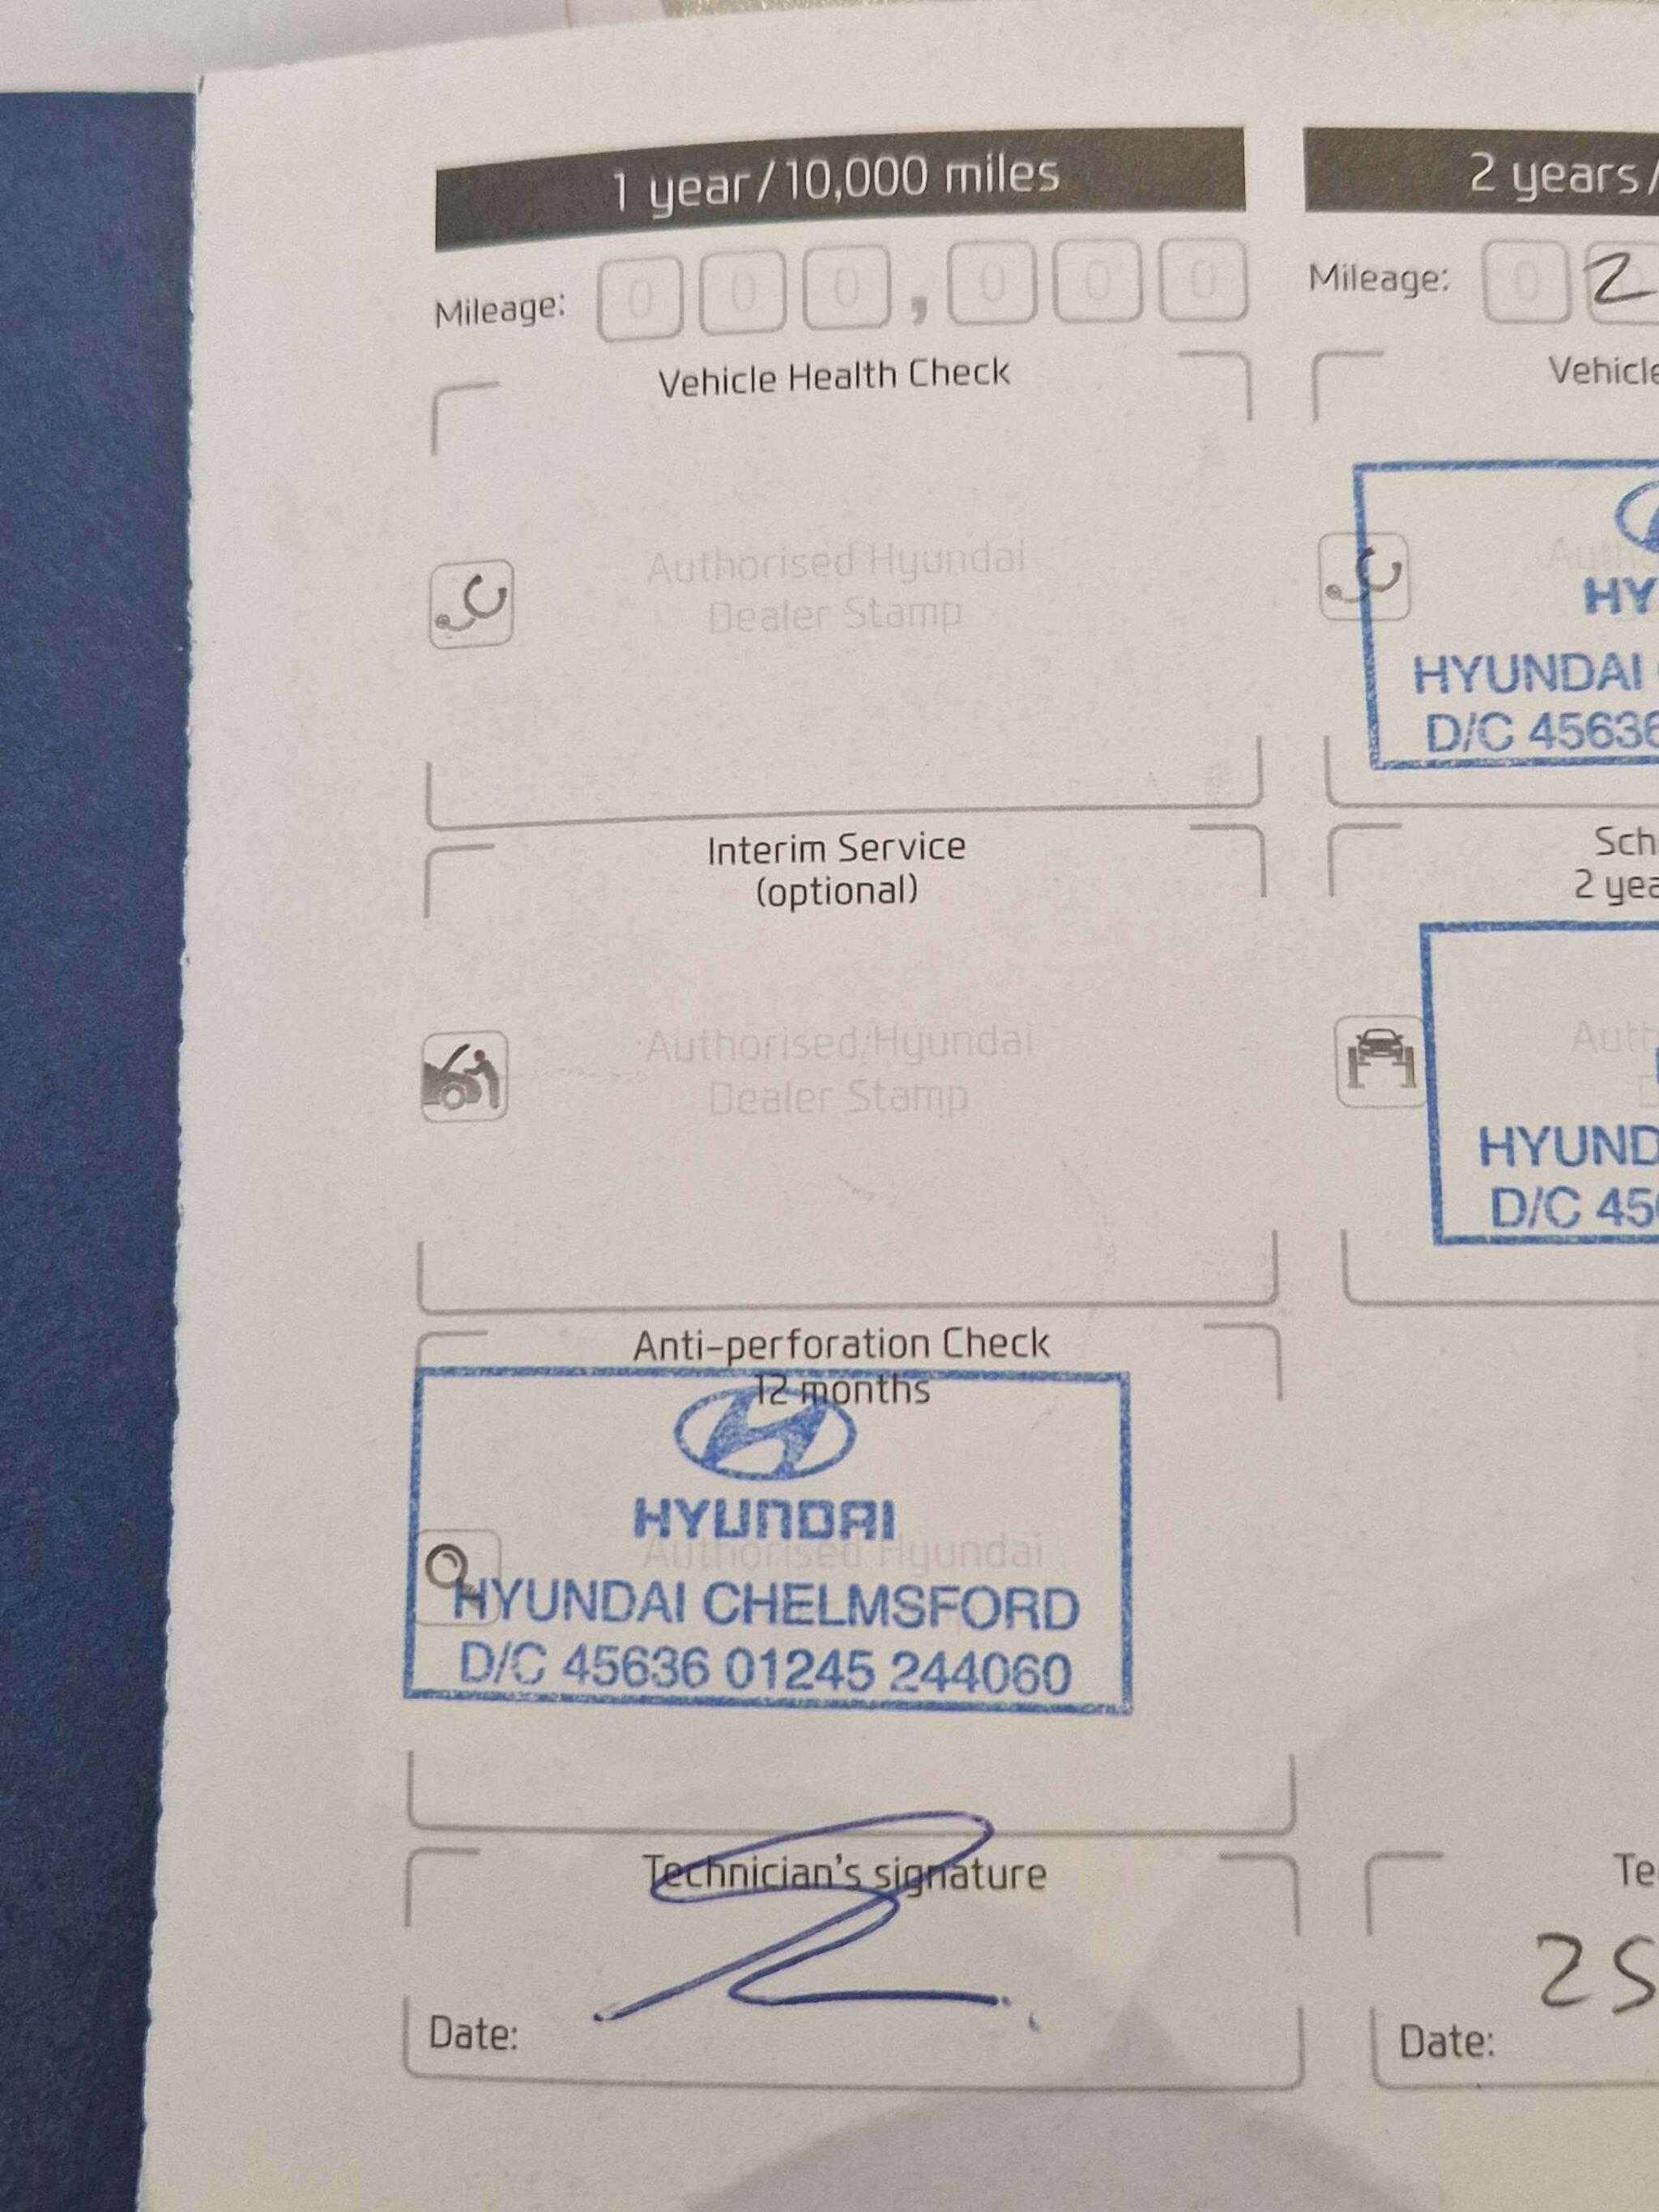 1 year/10,000 miles
Mileage: 0 0 0 , 0 0 0
Vehicle Health Check
Authorised Hyundai
Dealer Stamp
Interim Service
(optional)
Authorised Hyundai
Dealer Stamp
Anti-perforation Check
12 months
HYUNDAI
Authorised Hyundai
HYUNDAI CHELMSFORD
D/C 45636 01245 244060
Technician's signature
Date:
2 years/
Mileage: 0 2
HYUNDAI
D/C 45636
2
D/C
Date: